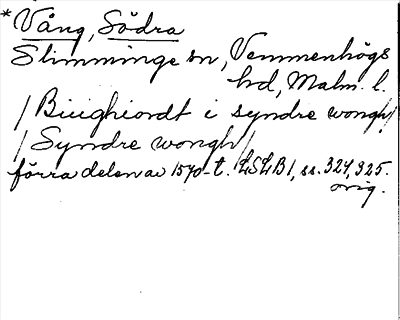 * Vång, Södra
Slimminge sn, Vemmenhögs
hd, Malm. l.
/Biughiordt i syndre wongh/
/Syndre wongh/
förra delen av 1570-t. LSLB1, ss. 324, 325.
orig.